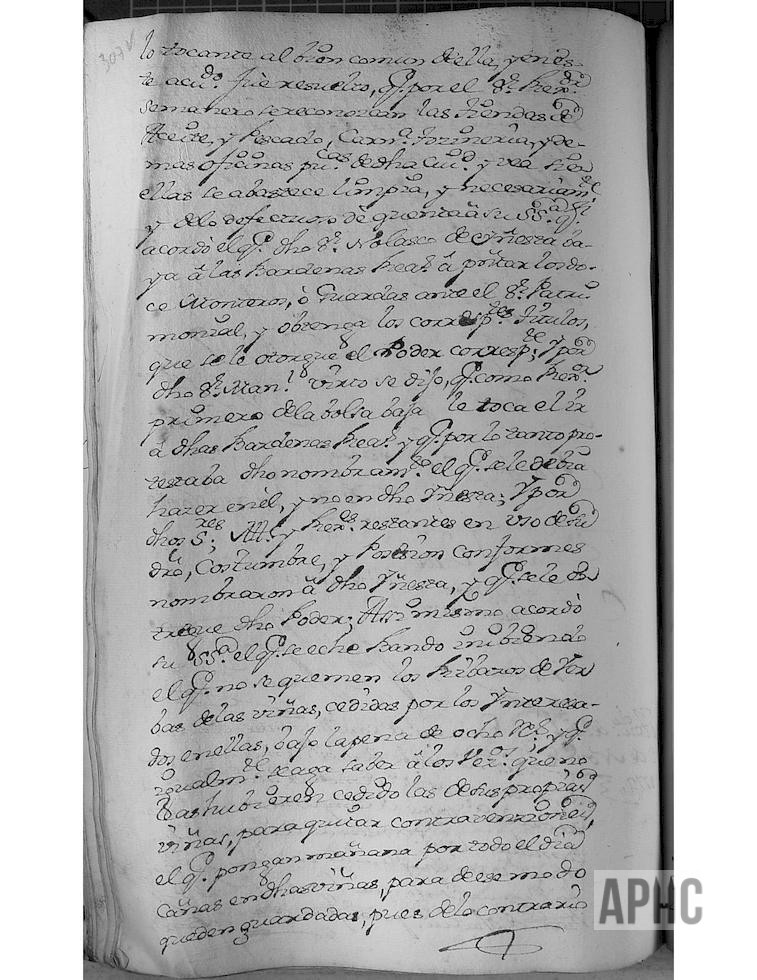 307v
lo tocante al bien comun de ella, y en es-
te acu.do fue resuelto, q.e por el S.r Rex.dr
semanero se reconozcan las tiendas de
Aceite, y Pescado, Carn.a tozineria, y de-
mas oficinas pu.cas de dha ciu.d y vea si en
ellas se abastece limpia, y necesariam.te
y delo defectuoso dè quenta à su SS.a Y
acordò el q.e dho S.r Nolasco de Yñesta ba-
ya à las Bardenas Rea.s à p̃ntar los do-
ce Monteros, ò Guardas ante el S.r Patri-
monial, y obtenga los corresp.tes titulos,
que se le otorgue el Poder corresp.te Y por
dho S.r Man.l Virto se dijo, q.e como Rex.or
primero dela bolsa baja le toca el ir
à dhas Bardenas Rea.s y q.e por lo tanto pro-
testaba dho nombram.to el q.e se le debia
hazer en èl, y no en dho Yñesta; Y por
dhos S.res Al.e y Rex.es restantes en vso de su
dr̃o, Costumbre, y Posesion conformes
nombraron à dho Yñesta, y q.e se le o-
torgue dho Poder; Assi mismo acordò
su SS.a el q.e se eche Bando inibiendo
el q.e no se quemen los Ribazos de Yer
bas de las viñas, cedidas por los Ynteresa-
dos en ellas, bajo la pena de ocho R.s y q.e
igualm.te se aga saber à los Vez.os que no
las hubieren cedido las de sus propias
viñas, para quitar contravenziones,
el q.e pongan mañana por todo el dia
cañas en dhas viñas, para de ese modo
queden guardadas, pues delo contrario
APHC